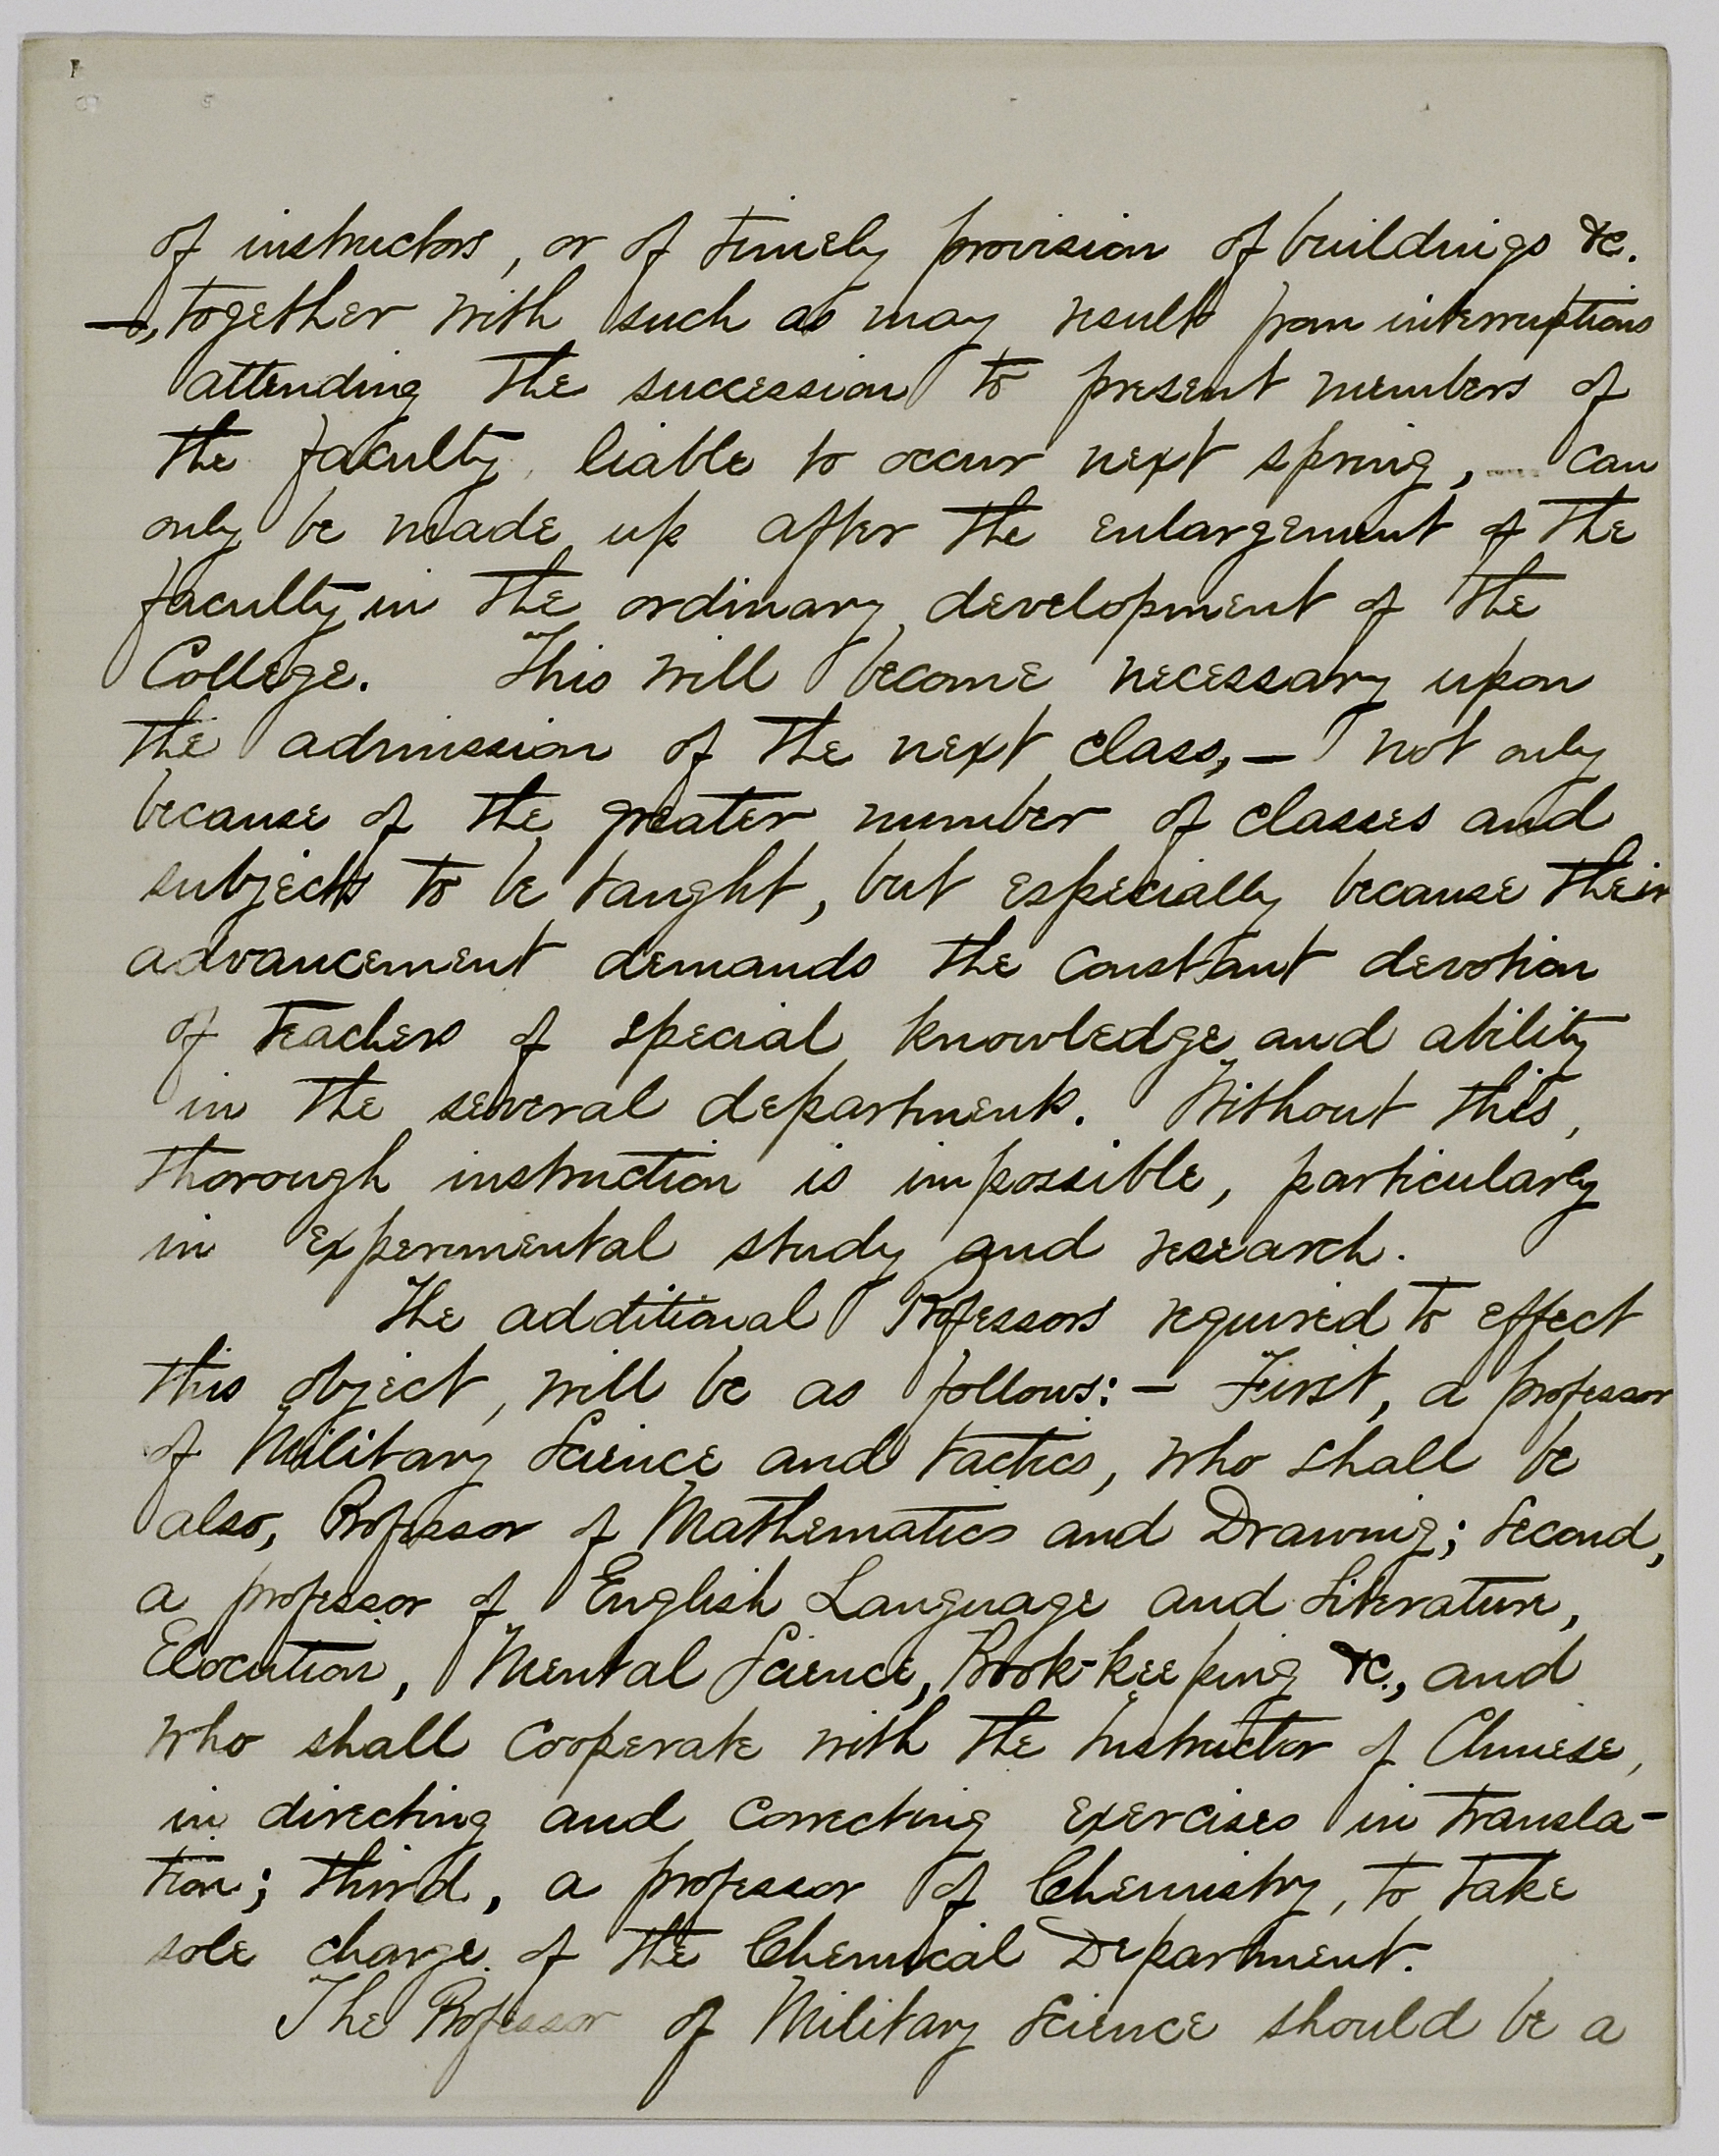 of instructors, or of timely provision of buildings &c.
—, together with such as may result from interruptions
attending the succession to present members of
the faculty, liable to occur next spring, can
only be made up after the enlargement of the
faculty in the ordinary development of the
College. This will become necessary upon
the admission of the next class,— not only
because of the greater number of classes and
subjects to be taught, but especially because their
advancement demands the constant devotion
of teachers of special knowledge and ability
in the several departments. Without this,
thorough instruction is impossible, particularly
in experimental study and research.
The additional Professors required to effect
this object, will be as follows:— First, a professor
of Military Science and Tactics, who shall be
also, Professor of Mathematics and Drawing; Second,
a professor of English Language and Literature,
Elocution, Mental Science, Book-keeping &c., and
who shall cooperate with the Instructor of Chinese,
in directing and correcting exercises in transla-
tion; third, a professor of Chemistry, to take
sole charge of the Chemical Department.
The Professor of Military Science should be a